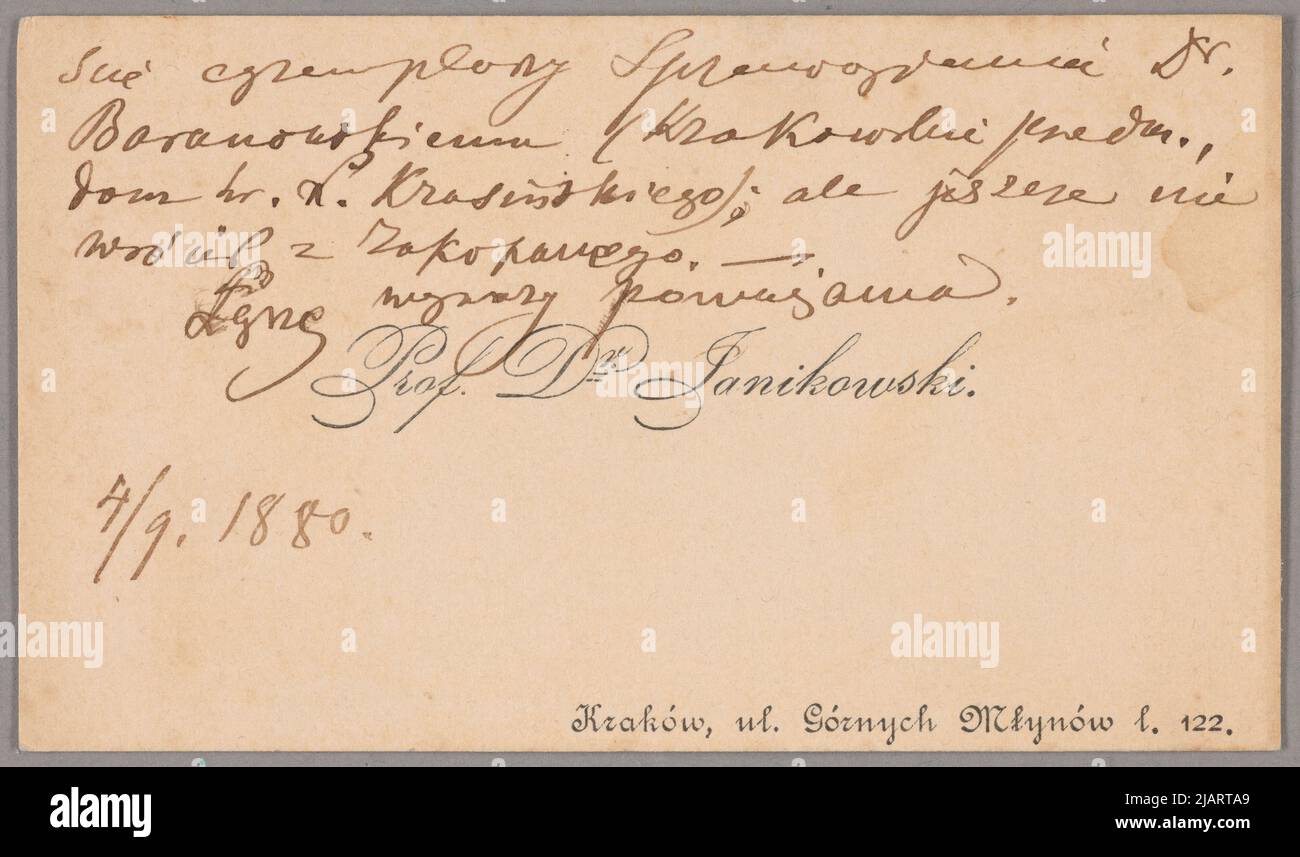 się egzemplarzy Sprawozdania Dr.
Baranowskiemu (Krakowskie przedm.,
dom hr. L. Krasińskiego); ale jeszcze nie
wrócił z Zakopanego. —
Łączę wyrazy poważania.
Prof. Dr. Janikowski.
4/9. 1880.
Kraków, ul. Górnych Młynów l. 122.
alamy
Image ID: 2JARTA9
www.alamy.com